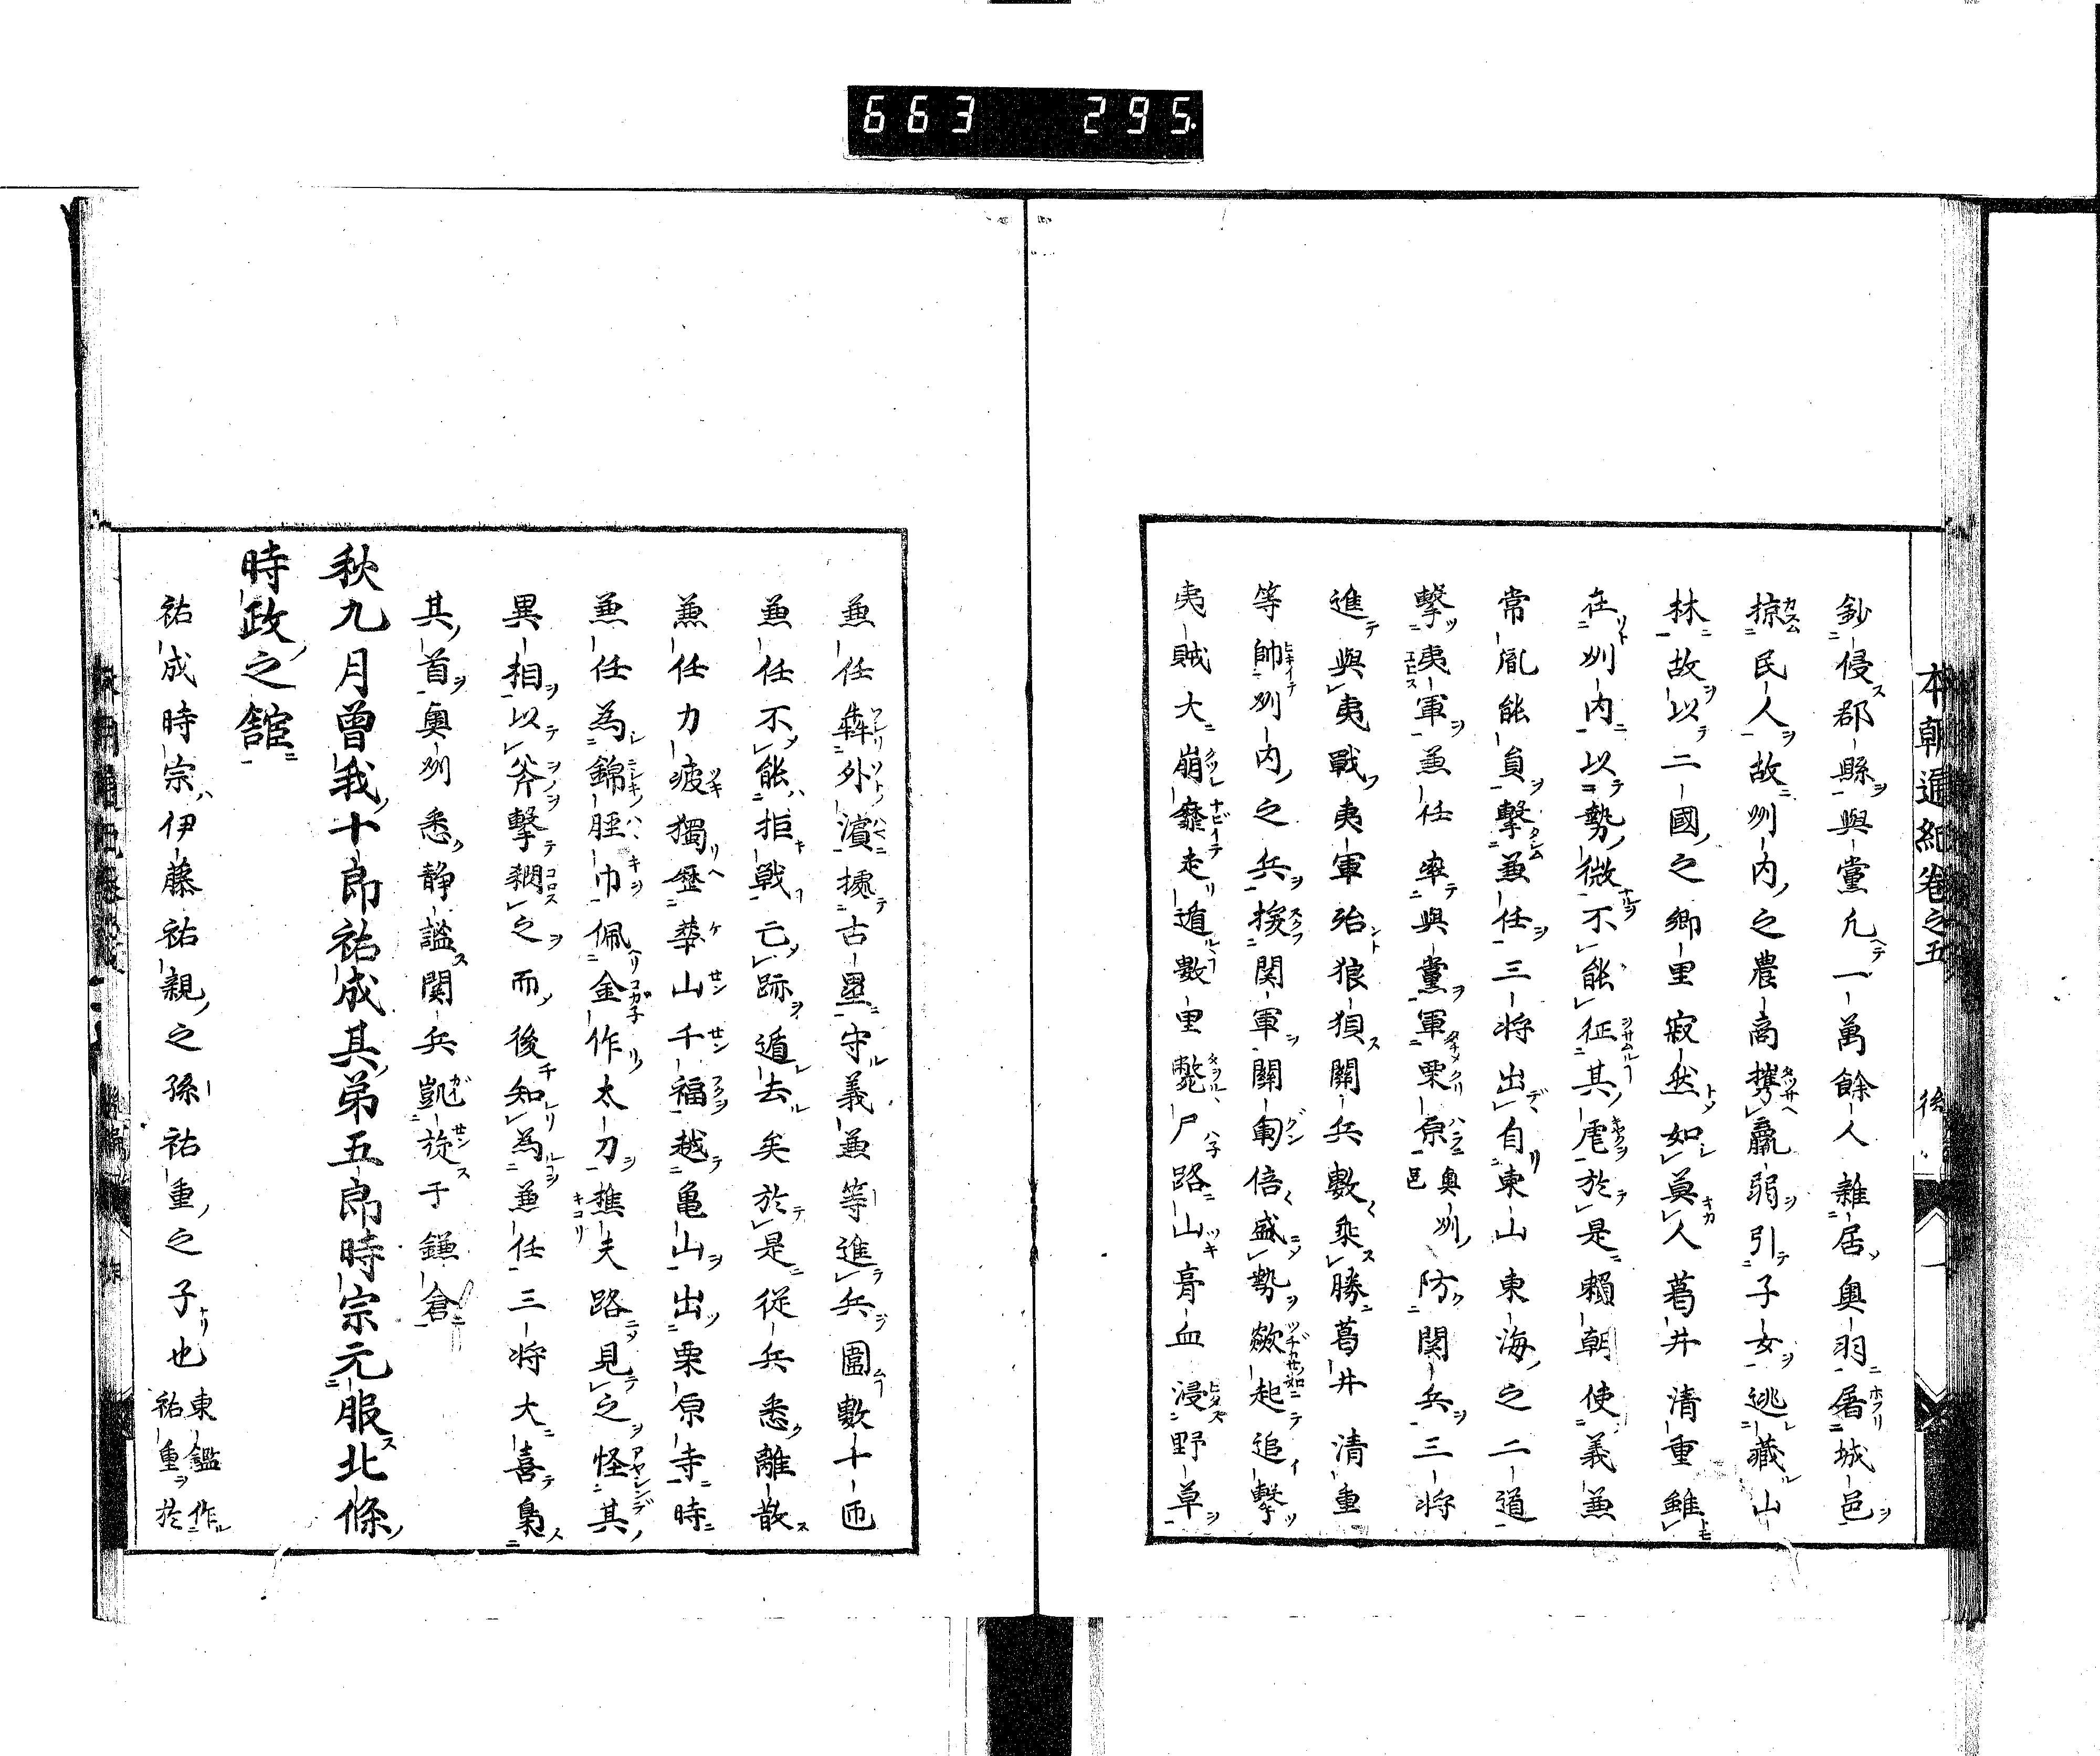 663 295
本朝通紀卷之五 後 一
鈔侵郡縣與黨凢一萬餘人雜居奧羽屠城邑
掠民人故州内之農商攜羸弱引子女逃藏山
林故以二國之郷里寂然如莫人葛井清重雖
在州内以勢微不能征其虐於是賴朝使義兼
常胤能員擊兼任三将出自東山東海之二道
擊夷軍兼任率與黨軍栗原奥州邑防関兵三将
進與夷戰夷軍殆狼狽關兵數乘勝葛井清重
等帥州内之兵援関軍關軍倍盛勢歘起追擊
夷賊大崩靡走遁數里斃尸路山膏血浸野草
兼任犇外濵據古壘守義兼等進兵圍數十匝
兼任不能拒戰亡跡遁去矣於是從兵悉離散
兼任力疲獨歴華山千福越亀山出栗原寺時
兼任為錦脛巾佩金作太刀樵夫路見之怪其
異相以斧擊殺之而後知為兼任三将大喜梟
其首奧州悉静謐関兵凱旋于鎌倉
秋九月曾我十郎祐成其弟五郎時宗元服北條
時政之舘
祐成時宗伊藤祐親之孫祐重之子也東鑑作祐重於